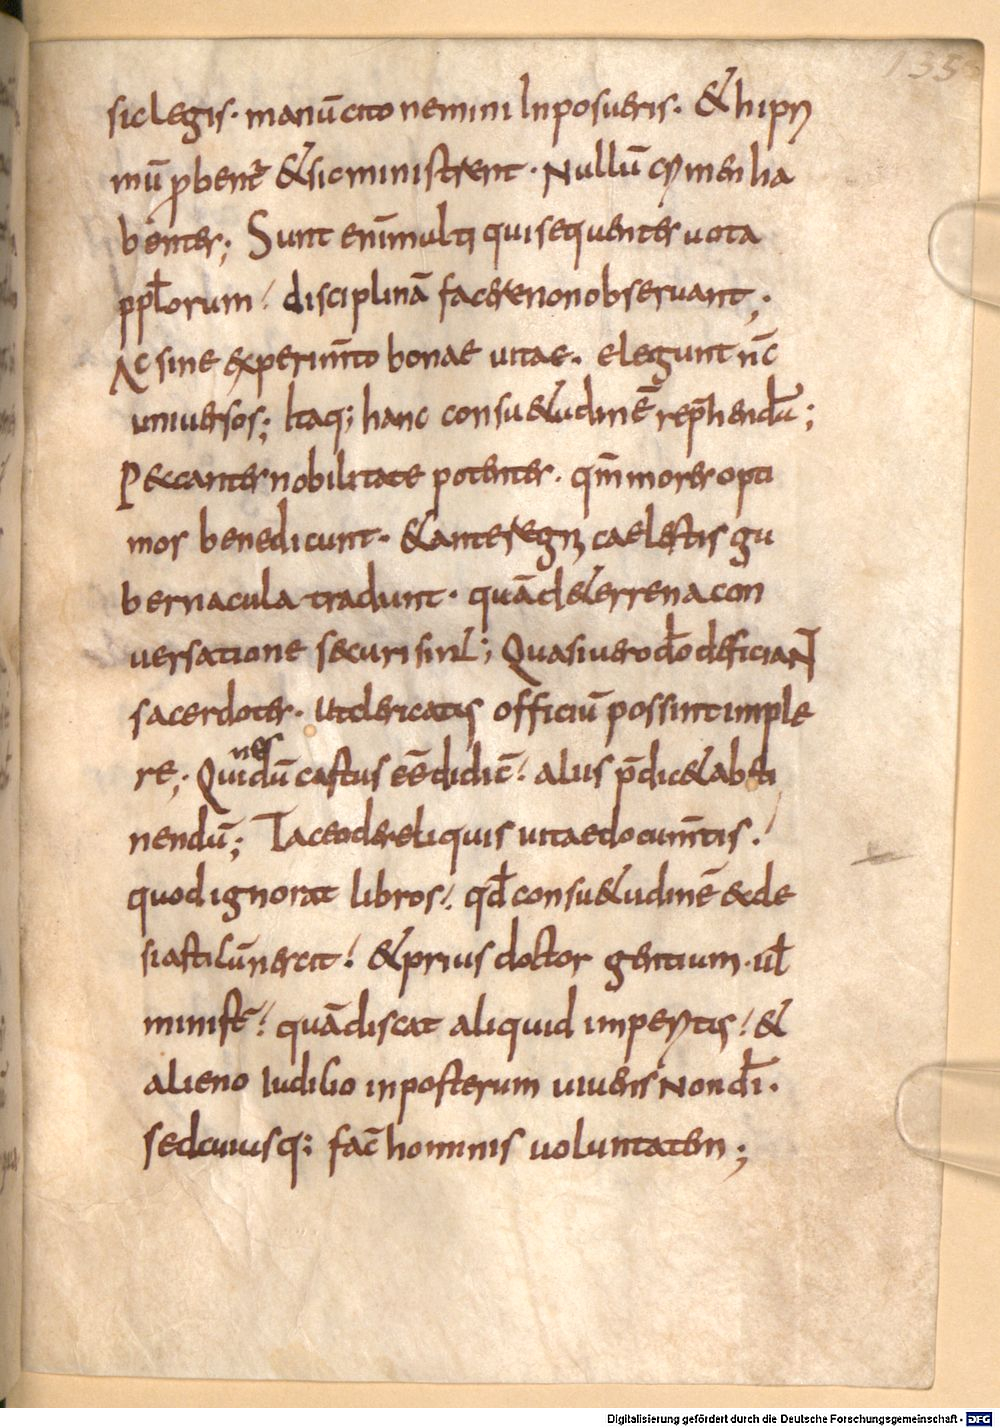 135
sic legis· manū cito nemini Inposueris· & hi pri
mū ꝓbent̄ & sic ministrent· Nullū crimen ha
bentes; Sunt enī multi qui sequentes uota
ppl̄orum / disciplinā facere non obseruant,·
Ac sine experim̄to bonae uitae· elegunt n̄c
uniuersos; Itaq; hanc consuetudinē rep̄hendū;
Peccantes nobilitate potentes· qm̄ mores opti
mos benedicunt· & ante regni caelestis gu
bernacula tradunt· quā de terrena con
uersatione securi sint; Quasi uero d̄o deficiaNT
sacerdotes· Ut clericatis officiū possint imple
re; Qui nesdū castus eē didic̄ / alus p̄dicet absti
nendū; Taceo de reliquis uitae docum̄tis·/
quod ignorat libros / qd̄ consuetudinē ecde
siasticū nescit / & prius doctor gentium· ul̄
minist̄ / quā discat aliquid imperitis / &
alieno Iudicio in posterum uiuens Non dī·
sed cuiusq; fac̄ hominis uoluntatem;
Digitalisierung gefördert durch die Deutsche Forschungsgemeinschaft - DFG